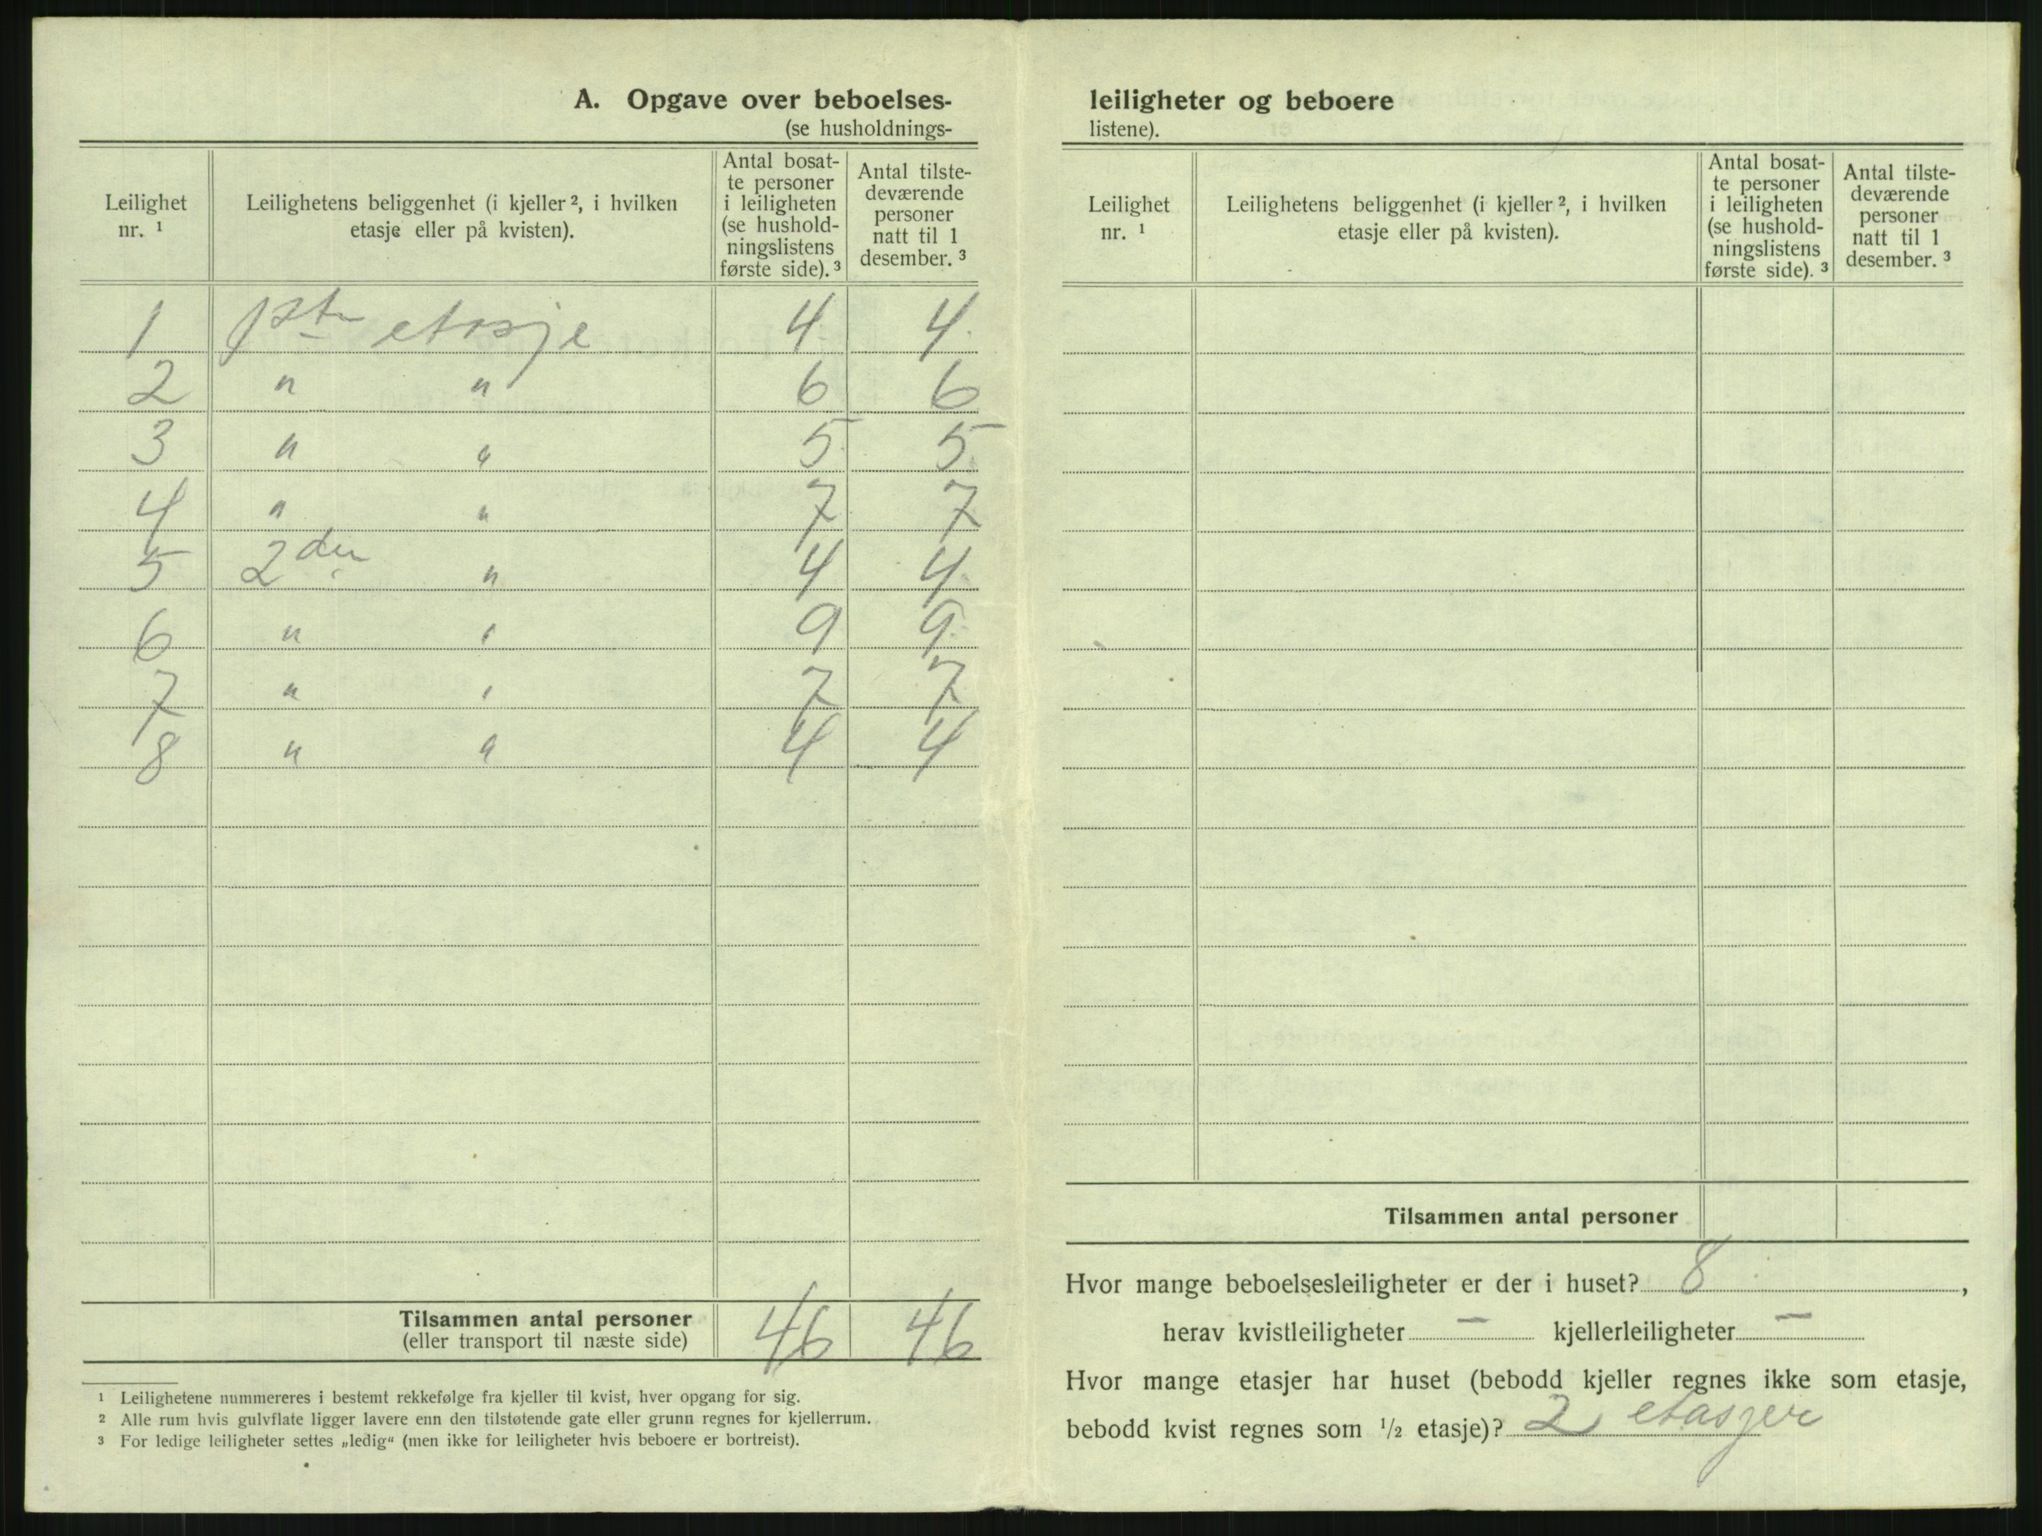 A. Opgave over beboelses-
(se husholdnings-
Leilighet nr. ¹ | Leilighetens beliggenhet (i kjeller ², i hvilken etasje eller på kvisten). | Antal bosatte personer i leiligheten (se husholdningslistens første side). ³ | Antal tilstedeværende personer natt til 1 desember. ³
1 1ste etasje 4 4
2 " " 6 6
3 " " 5 5
4 " " 7 7
5 2den " 4 4
6 " " 9 9
7 " " 7 7
8 " " 4 4
Tilsammen antal personer 46 46
(eller transport til næste side)
¹ Leilighetene nummereres i bestemt rekkefølge fra kjeller til kvist, hver opgang for sig.
² Alle rum hvis gulvflate ligger lavere enn den tilstøtende gate eller grunn regnes for kjellerrum.
³ For ledige leiligheter settes „ledig“ (men ikke for leiligheter hvis beboere er bortreist).
leiligheter og beboere
listene).
Leilighet nr. ¹ | Leilighetens beliggenhet (i kjeller ², i hvilken etasje eller på kvisten). | Antal bosatte personer i leiligheten (se husholdningslistens første side). ³ | Antal tilstedeværende personer natt til 1 desember. ³
Tilsammen antal personer
Hvor mange beboelsesleiligheter er der i huset? 8 ,
herav kvistleiligheter — kjellerleiligheter —
Hvor mange etasjer har huset (bebodd kjeller regnes ikke som etasje,
bebodd kvist regnes som ½ etasje)? 2 etasjer